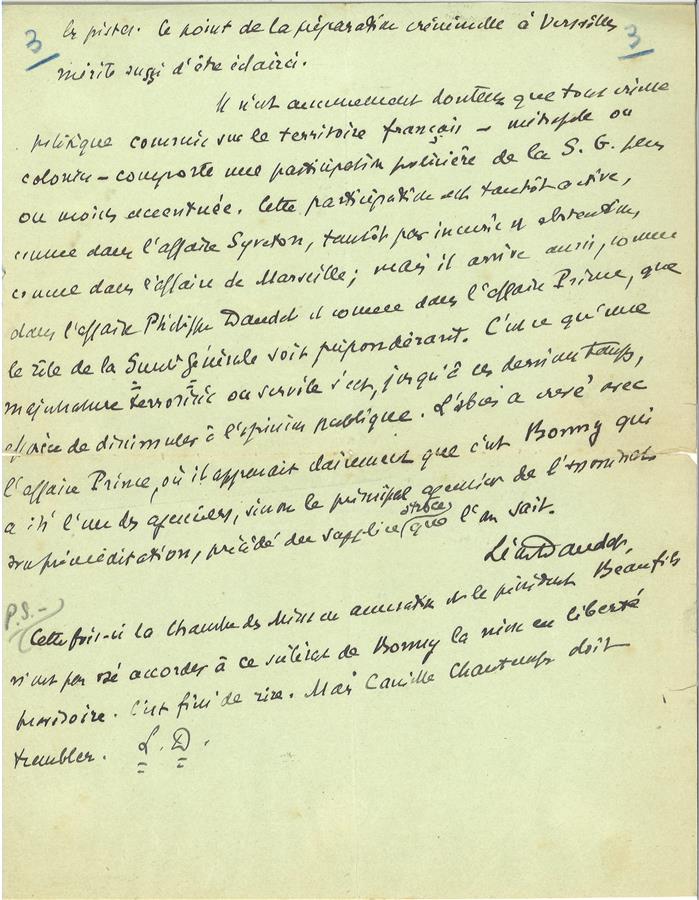 3 les pistes. Ce point de la préparation criminelle à Versailles 3
mérite aussi d'être éclairci.
Il n'est aucunement douteux que tout crime
politique commis sur le territoire français – métropole ou
colonies – comporte une participation policière de la S. G. plus
ou moins accentuée. Cette participation est tantôt active,
comme dans l'affaire Syveton, tantôt par incurie et abstention,
comme dans l'affaire de Marseille ; mais il arrive aussi, comme
dans l'affaire Philippe Daudet et comme dans l'affaire Prince, que
le rôle de la Sûreté Générale soit prépondérant. C'est ce qu'une
magistrature terrorisée ou servile s'est, jusqu'à ces derniers temps,
efforcée de dissimuler à l'opinion publique. L'abcès a crevé avec
l'affaire Prince, où il apparait clairement que c'est Bonny qui
a été l'un des agenciers, sinon le principal agencier de l'assassinat
avec préméditation, précédé du supplice atroce que l'on sait.
Léon Daudet,
P.S. –
Cette fois-ci la Chambre des Mises en accusation et le président Beaufils
n'ont pas osé accorder à ce scélérat de Bonny la mise en liberté
provisoire. C'est fini de rire. Mais Camille Chautemps doit
trembler. L. D.